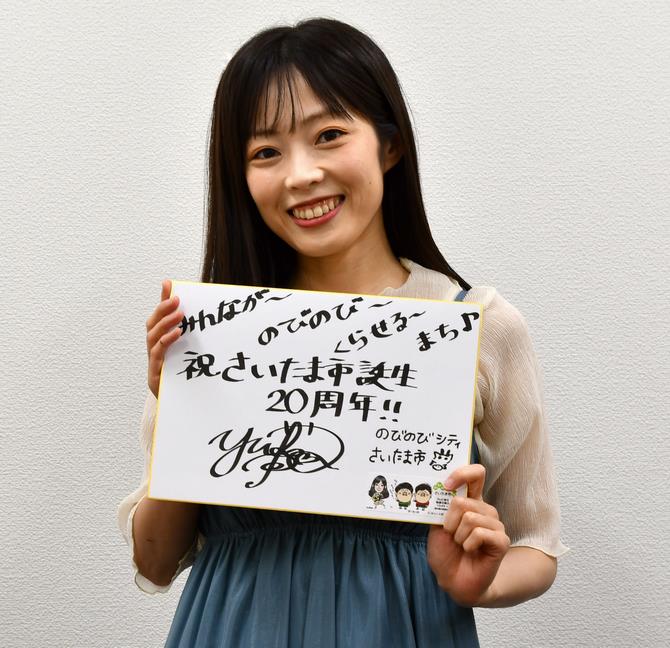 みんなが～
のびのび～
くらせる～
まち♪
祝さいたま市誕生
20周年!!
のびのびシティ
さいたま市